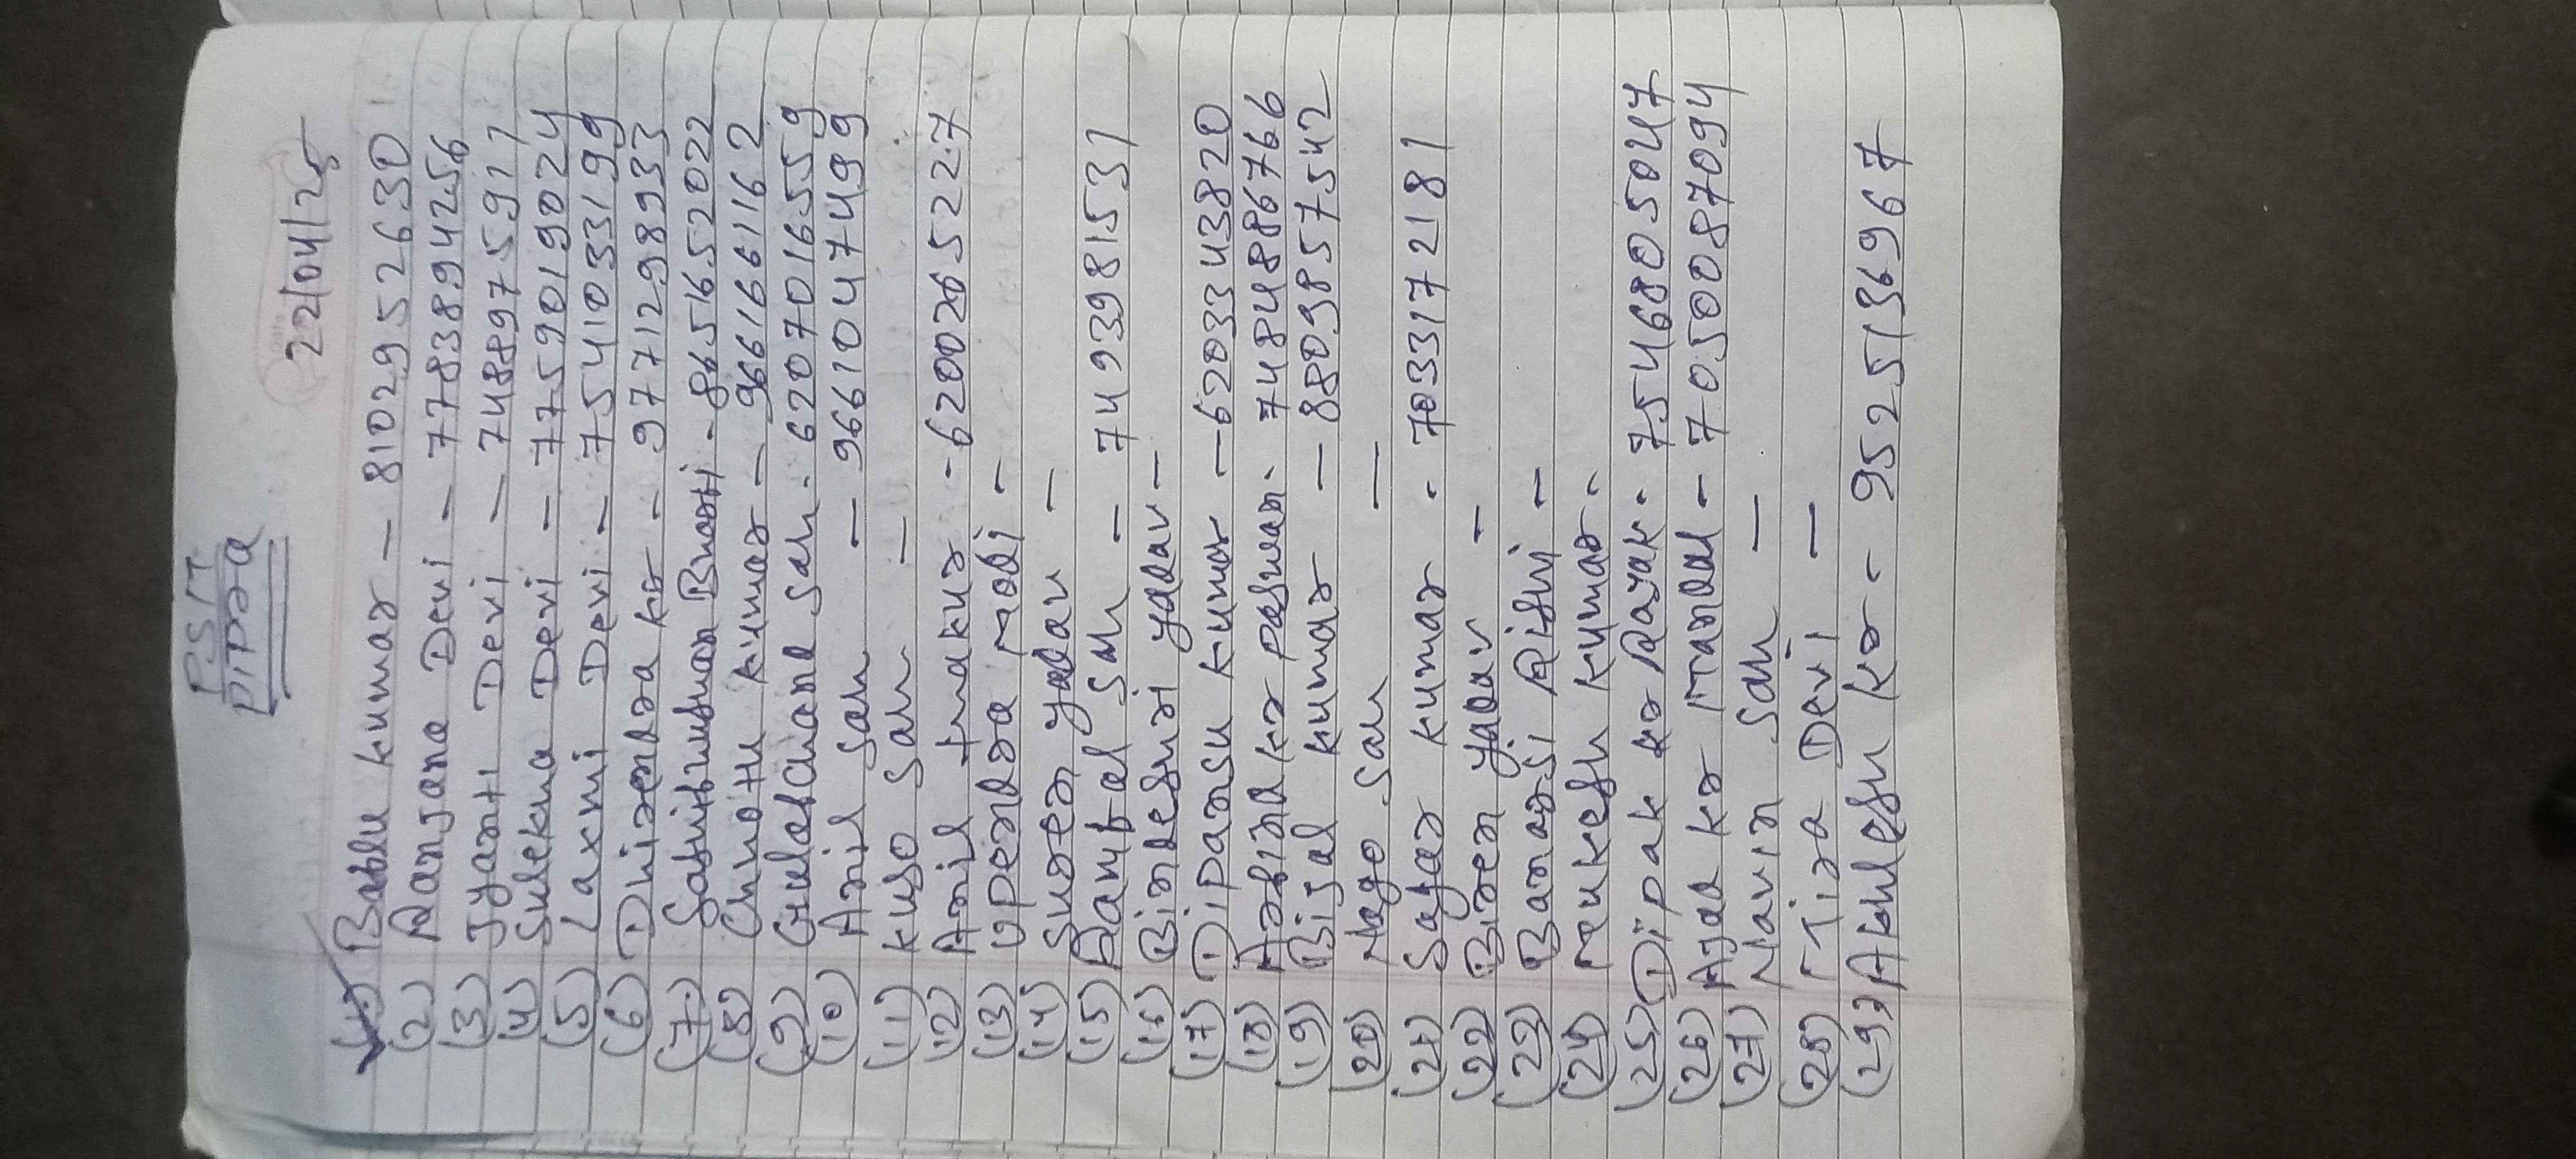 P.S.IT
PIPRA
22/04/25
(1) Bablu Kumar - 8102952630
(2) Ranjana Devi - 7783894256
(3) Jyanti Devi - 7488975911
(4) Sulekha Devi - 7759019024
(5) Laxmi Devi - 7541033199
(6) Dhirendra Kr - 9771298933
(7) Sashibhushan Bharti - 8651652022
(8) Chhotu Kumar - 9661661162
(9) Gulabchand Sah - 6207016559
(10) Anil Sah - 9661047499
(11) Kuso Sah -
(12) Anil Thakur - 6200265227
(13) Upendra Modi -
(14) Suren Yadav -
(15) Sah - 7493981531
(16) Bindeshri Yadav -
(17) Dipansu Kumar - 6203343820
(18) Arbind Kr Paswan - 7484886766
(19) Bijal Kumar - 8809857542
(20) Nago Sah -
(21) Sagar Kumar - 7033172181
(22) Biren Yadav -
(23) Banarsi Rishi -
(24) Mukesh Kumar -
(25) Dipak Kr Rajak - 7546805047
(26) Kr Mandal - 7050087094
(27) Navin Sah -
(28) Mira Devi -
(29) Akhlesh Kr - 9525136967